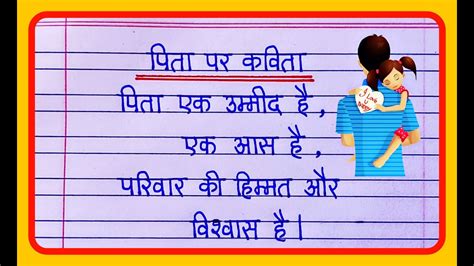 पिता पर कविता
पिता एक उम्मीद है,
एक आस है,
परिवार की हिम्मत और
विश्वास है।